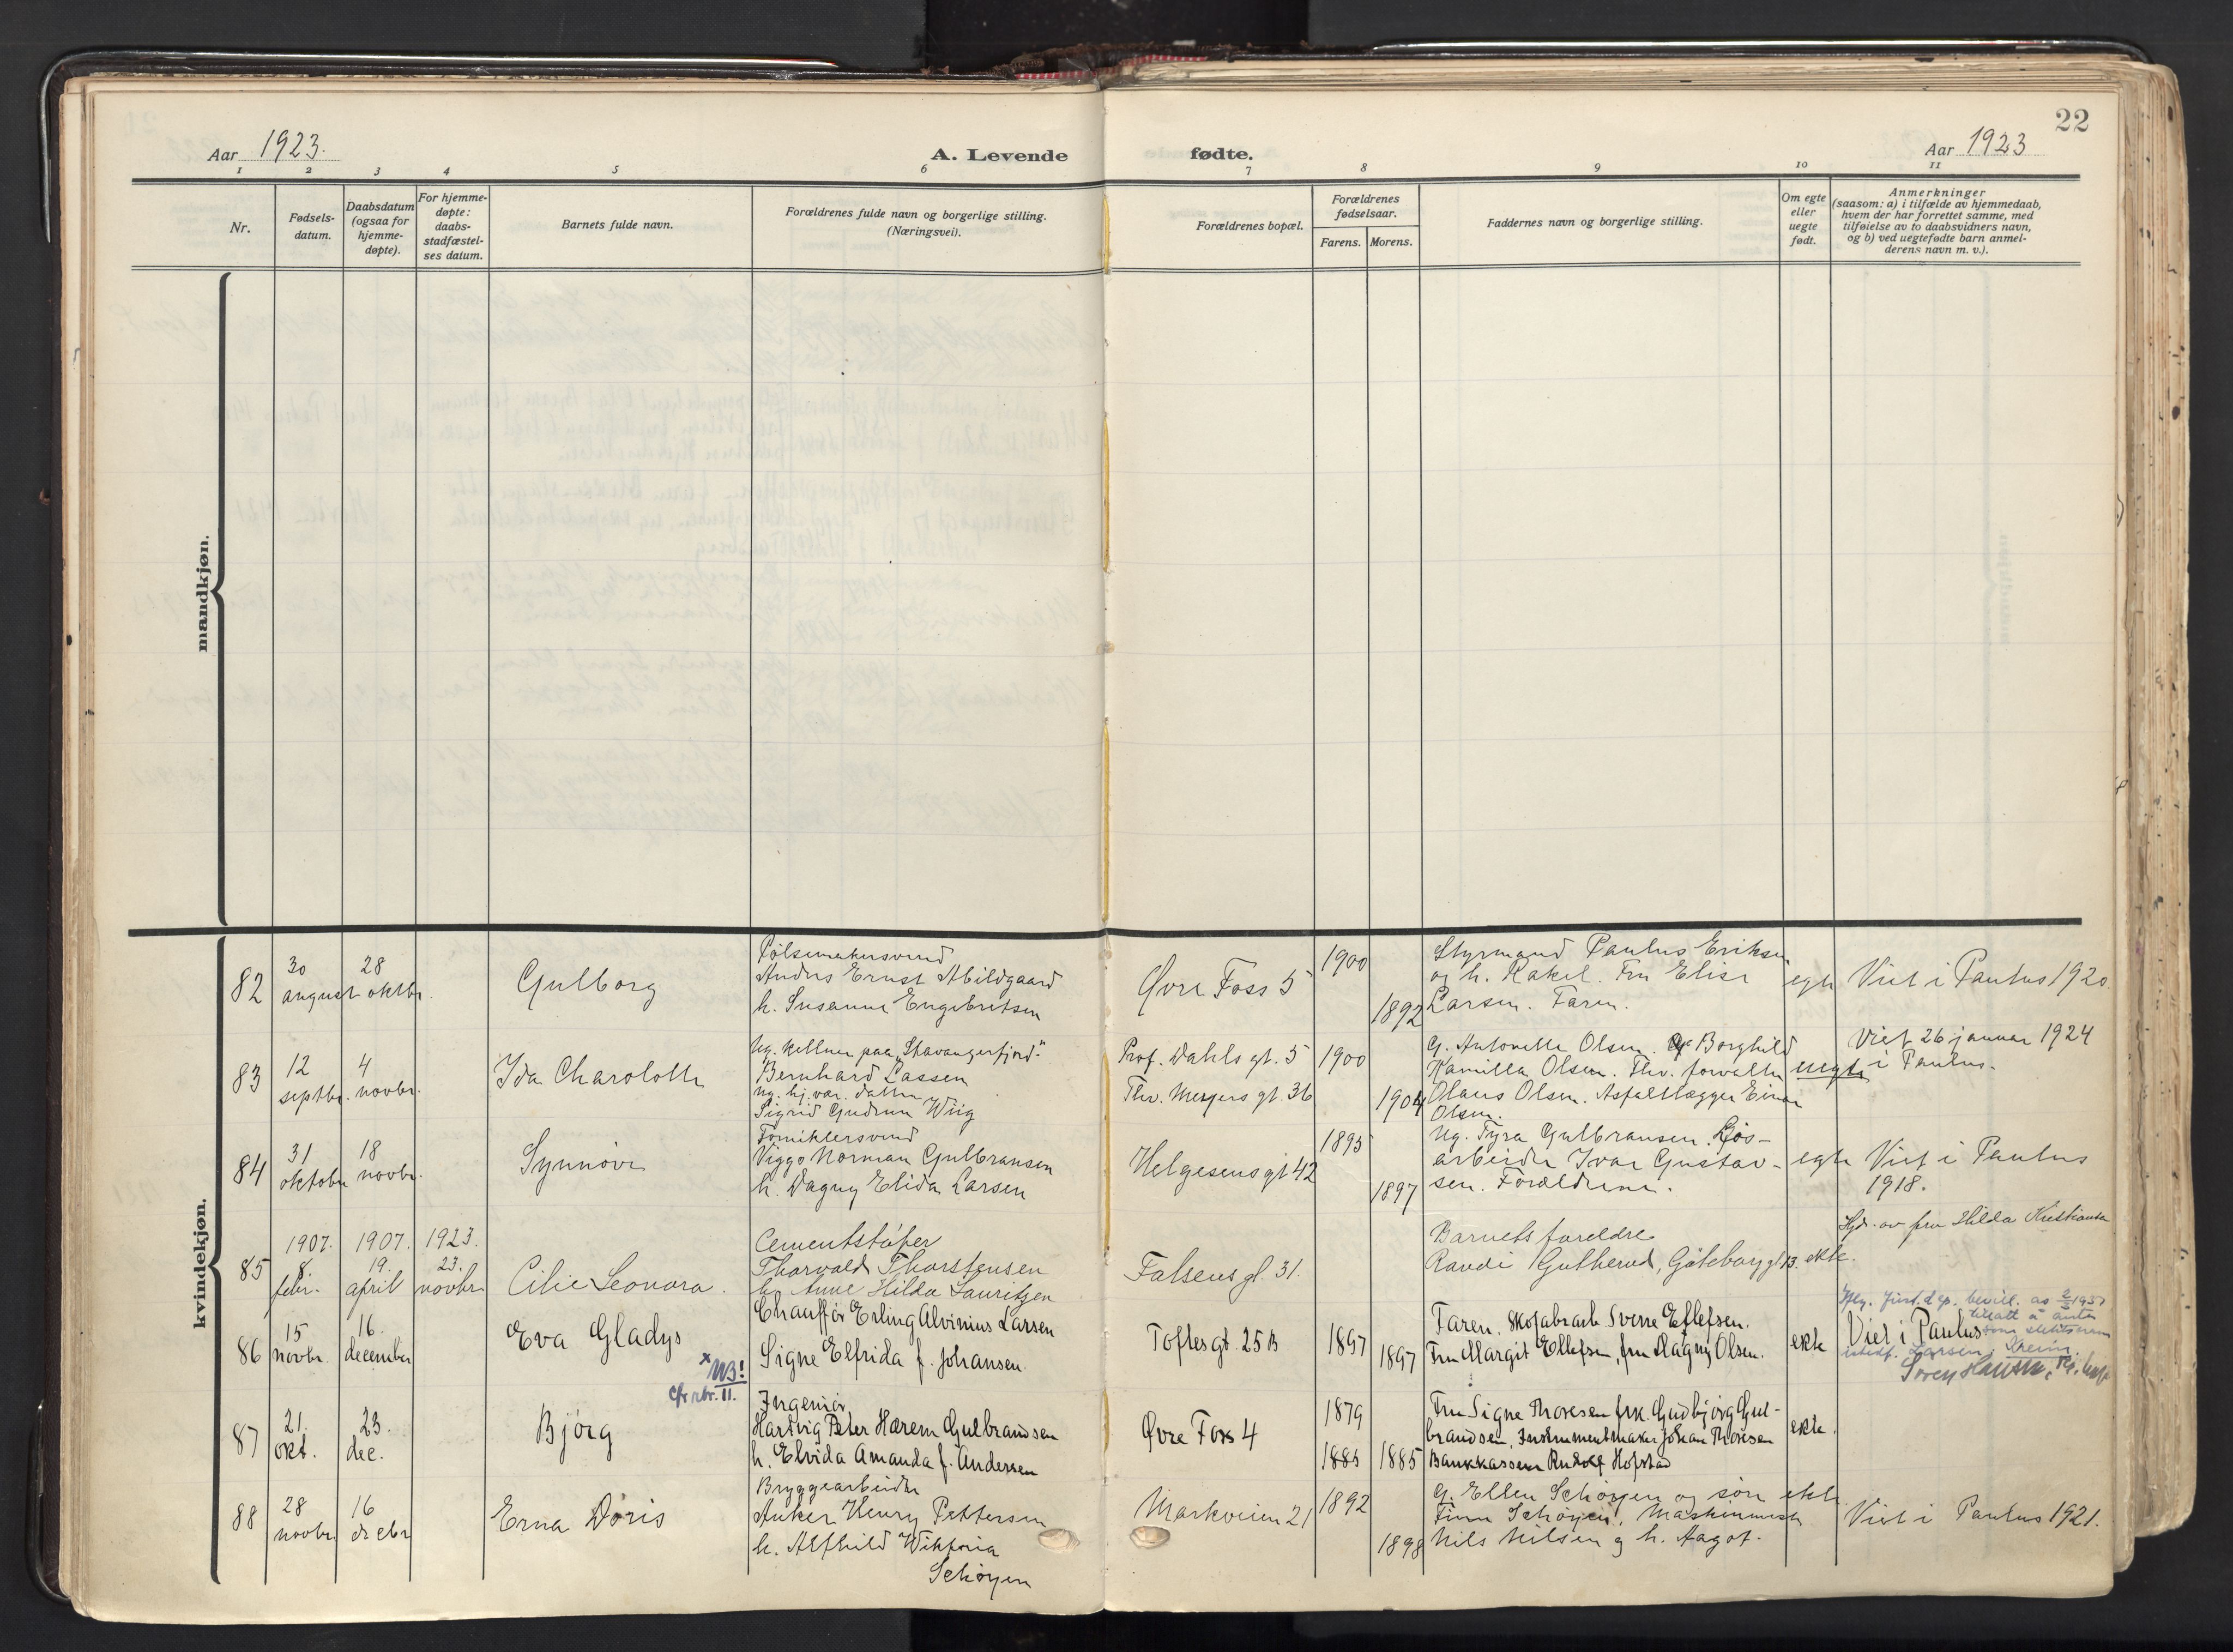 22
Aar 1923.
A. Levende
fødte.
Aar 1923
1 2 3 4 5 6 7 8 9 10 11
Nr.
Fødsels-
datum.
Daabsdatum
(ogsaa for
hjemme-
døpte).
For hjemme-
døpte:
daabs-
stadfæstel-
ses datum.
Barnets fulde navn.
Forældrenes fulde navn og borgerlige stilling.
(Næringsvei).
Forældrenes bopæl.
Forældrenes
fødselsaar.
Farens. Morens.
Faddernes navn og borgerlige stilling.
Om egte
eller
uegte
født.
Anmerkninger
(saasom: a) i tilfælde av hjemmedaab,
hvem der har forrettet samme, med
tilføielse av to daabsvidners navn,
og b) ved uegtefødte barn anmel-
derens navn m. v.).
mandkjøn.
kvindekjøn.
82
30
august
28
oktbr.
Gulborg
Pølsemakersvend
Anders Ernst Abildgaard
h. Susanne Engebretsen
Øvre Foss 5
1900
1892
Styrmand Paulus Eriksen
og h. Rakel. Fru Elise
Larsen. Faren.
egte
Viet i Paulus 1920.
83
12
septbr.
4
novbr.
Ida Charolotte
Ug. kellner paa "Stavangerfjord"
Bernhard Lassen
ug. hj.vær. datter
Sigrid Gudrun Wiig
Prof. Dahls gt. 5
Thv. Meyers gt. 36
1900
1904
G. Antonette Olsen. Borghild
Kamilla Olsen. Thv. forvalter
Olaus Olsen. Asfaltlægger Einar
Olsen.
uegte
Viet 26 januar 1924
i Paulus.
84
31
oktober
18
novbr.
Synnøve
Forniklersvend
Viggo Norman Gulbransen
h. Dagny Elida Larsen
Helgesens gt 42
1895
1897
Ug. Tyra Gulbransen. Løs-
arbeider Ivar Gustav-
sen. Forældrene.
egte
Viet i Paulus
1918.
85
1907.
8
febr.
1907.
19.
april
1923.
23.
novbr.
Cilie Leonora.
Cementstøper
Thorvald Thorstensen
h. Anne Hilda Lauritzen
Falsens gt. 31.
Barnets foreldre
Randi Gutherud, Göteborggt 13.
ekte.
Hjd. av fru Hilda Kristiansen
86
15
novbr.
16.
december
Eva Gladys
x NB!
cfr. rbr. 11.
Chauffør Erling Alvinius Larsen
Signe Elfrida f. Johansen
Toftesgt. 25 B
1897
1897
Faren. Skofabrarb. Sverre Ellefsen.
Fru Margit Ellefsen, fru Magny Olsen.
ekte
Iflg. Just. dep. bevill. av
tillatt å anta
Viet i Paulus som slektsnavn
istedf. Larsen:
87
21.
okt.
23.
dec.
Bjørg
Ingeniør
Hartvig Peter Hærem Gulbrandsen
h. Elvida Amanda f. Andersen
Øvre Foss 4
1879
1885
1885
Fru Signe Thoresen frk. Gudbjørg Gul-
brandsen, Instrumentmaker Johan Thoresen
Bankkasserer Rudolf Hofstad
ekte.
88
28
novbr.
16
decbr
Erna Doris
Bryggearbeider
Anker Henry Pettersen
h. Alfhild Wiktoria
Schøyen
Markveien 21
1892
1898
G. Ellen Schøyen og søn
Finn Schøyen, Maskinmest
Nils Nilsen og h. Aagot.
ekte
Viet i Paulus 1921.